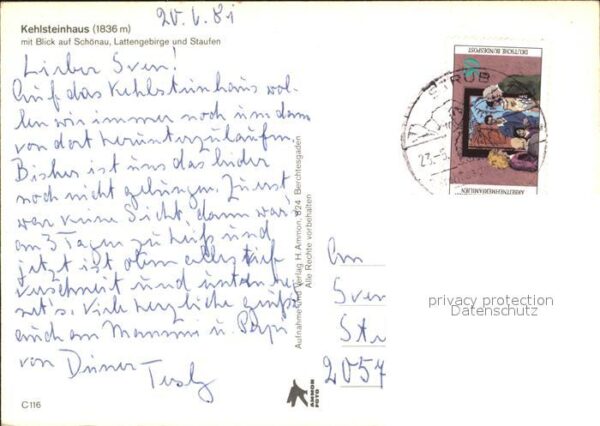 Kehlsteinhaus (1836 m)
mit Blick auf Schönau, Lattengebirge und Staufen
20.6.81
Lieber Sven!
Auf das Kehlsteinhaus wol-
len wir immer noch um dann
von dort herunterzulaufen.
Bisher ist uns das leider
noch nicht gelungen. Zuerst
war keine Sicht, dann war's
an 3 Tagen zu heiß und
jetzt ist oben alles tief
verschneit und unten reg-
net's. Viele herzliche Grüße
auch an Mammi u. Pappi
von Deiner
C116
Aufnahme und Verlag H. Ammon, 824 Berchtesgaden
Alle Rechte vorbehalten
AMMON
FOTO
DEUTSCHE BUNDESPOST
STRUB
23.-6.
An
Sven
2057
privacy protection
Datenschutz